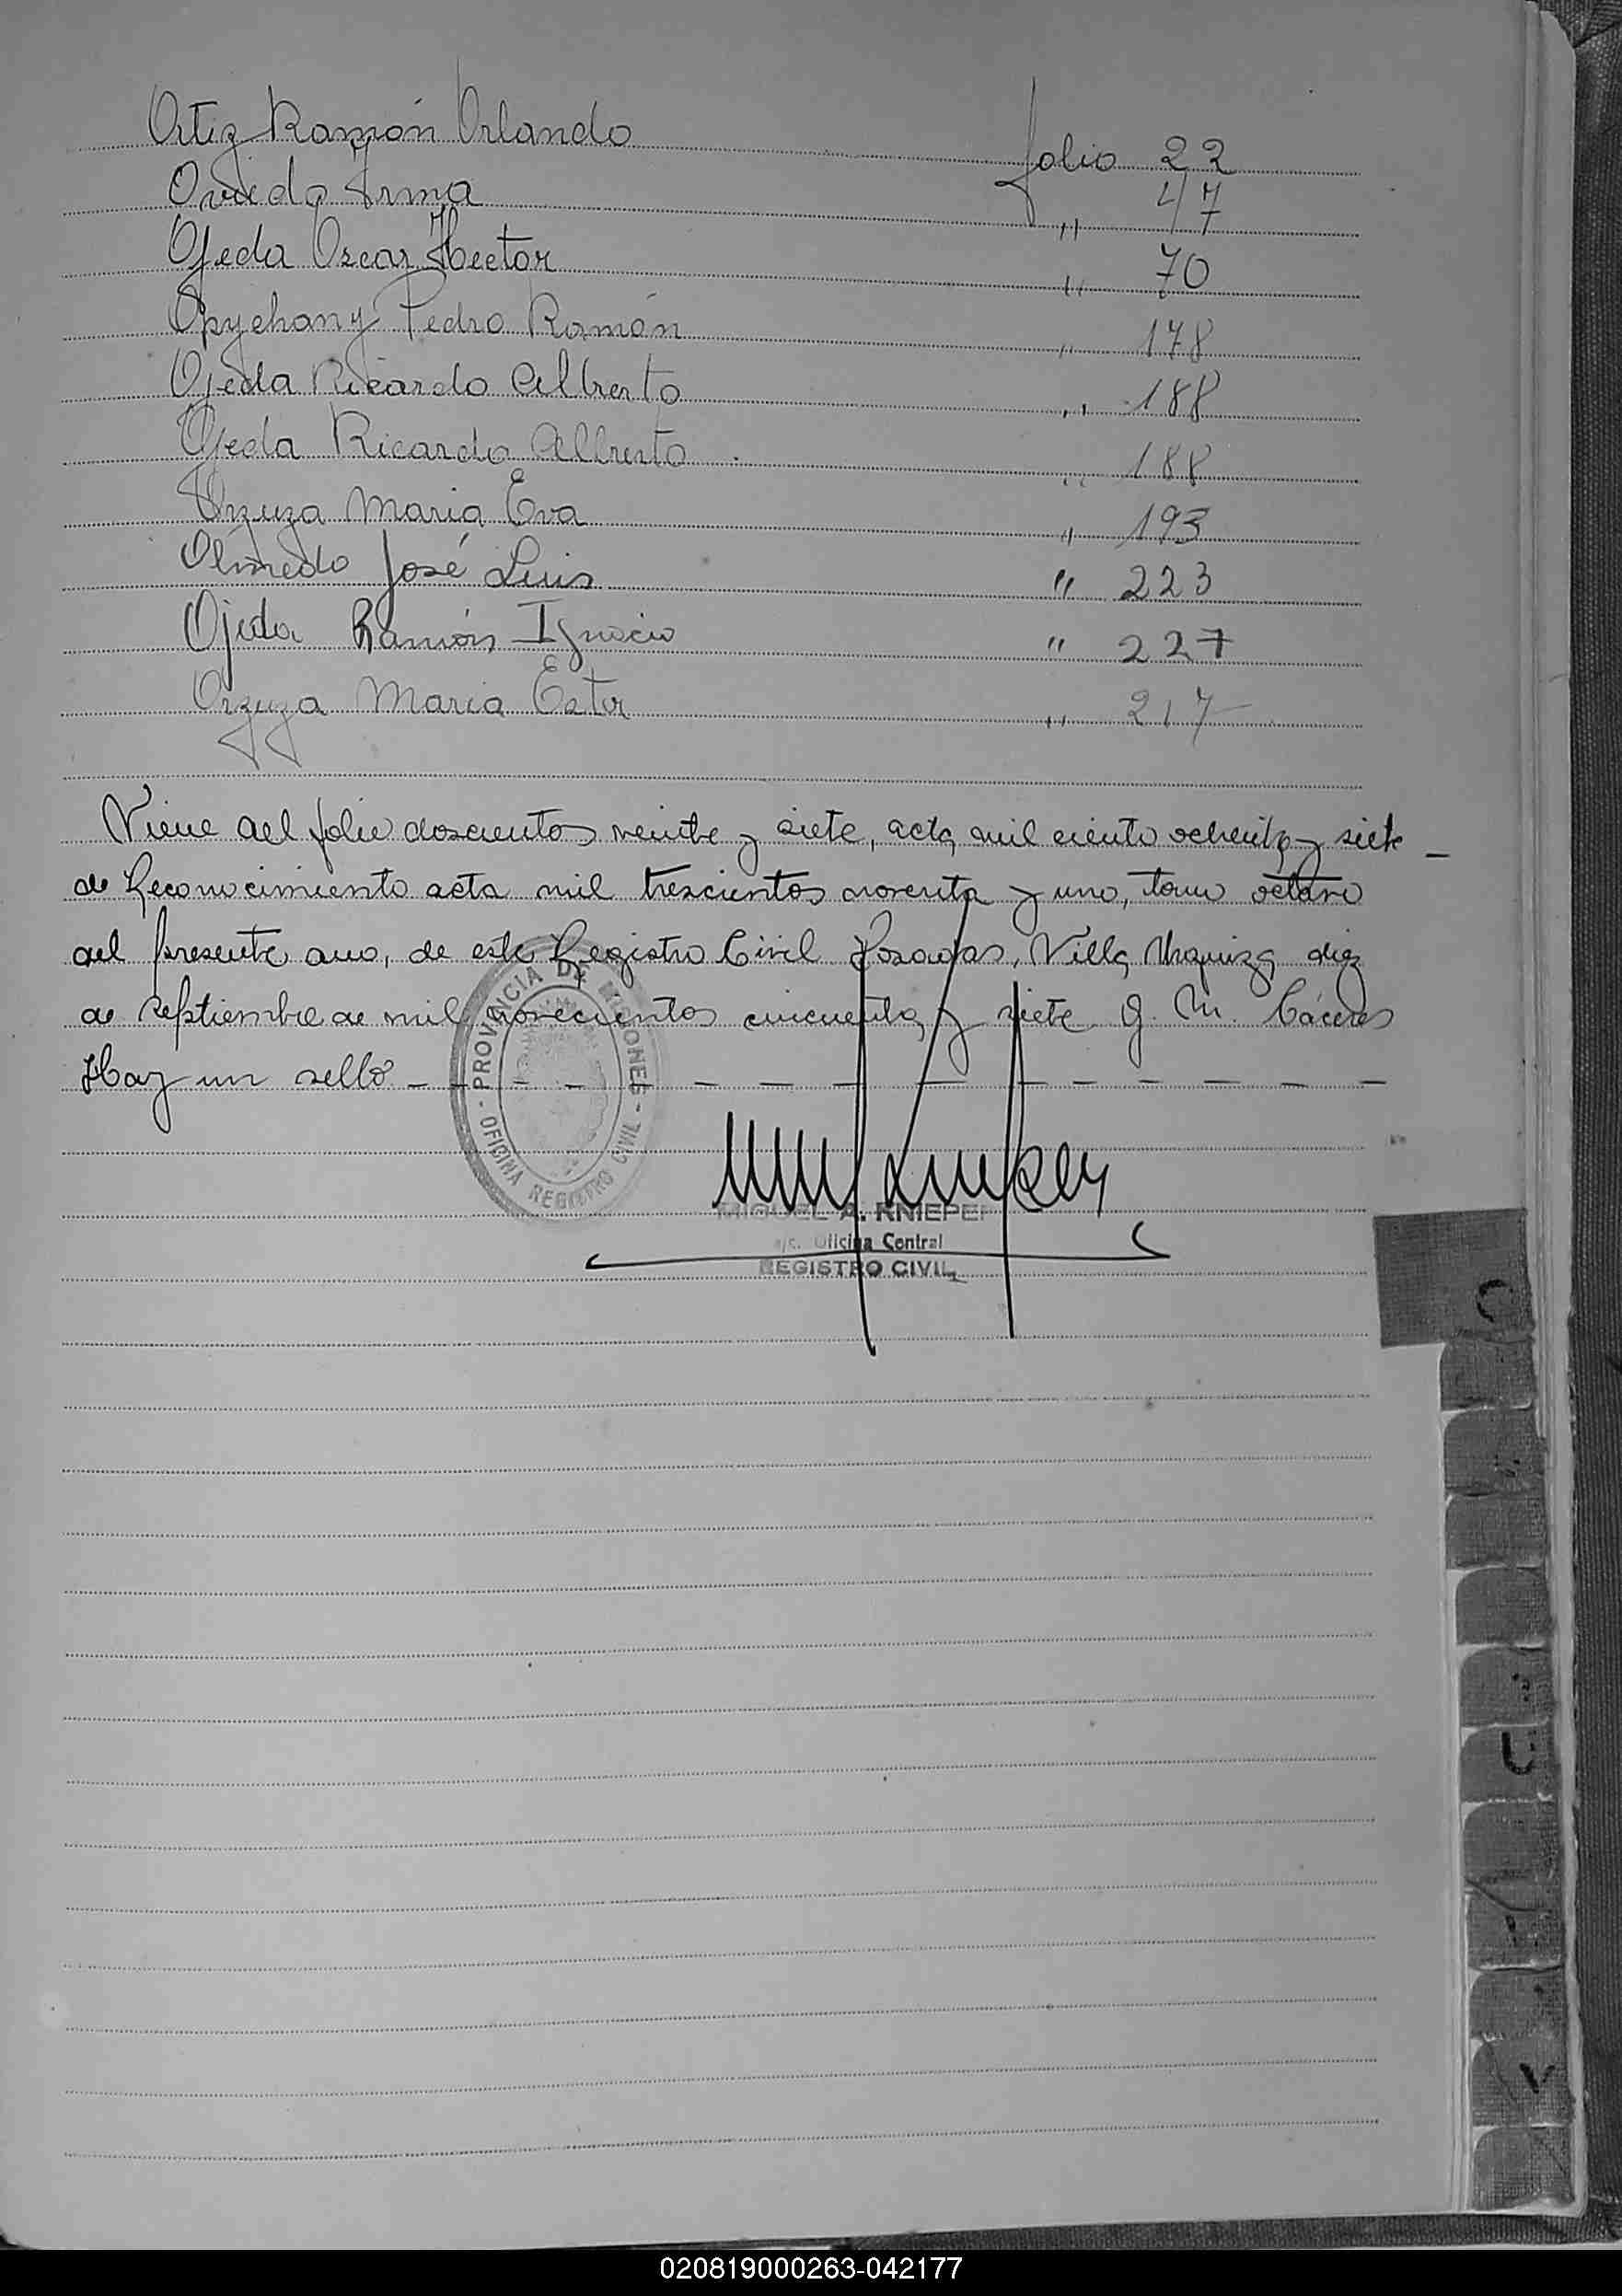 Ortiz Ramón Orlando folio 22
Oviedo Irma " 47
Ojeda Oscar Hector " 70
Opychany Pedro Ramón " 178
Ojeda Ricardo Alberto " 188
Ojeda Ricardo Alberto " 188
Orzuza Maria Eva " 193
Olmedo José Luis " 223
Ojeda Ramón Ignacio " 227
Orzuza Maria Ester " 217
Viene del folio doscientos veinte y siete, acta mil ciento ochenta y siete
de Reconocimiento acta mil trescientos noventa y uno, tomo octavo
del presente año, de este Registro Civil Posadas, Villa Urquiza diez
de septiembre de mil novecientos cincuenta y siete J. M. Cáceres
Hay un sello
- PROVINCIA DE MISIONES - OFICINA REGISTRO CIVIL
MIGUEL A. KNIEPER
a/c. Oficina Central
REGISTRO CIVIL
C
U
V
020819000263-042177